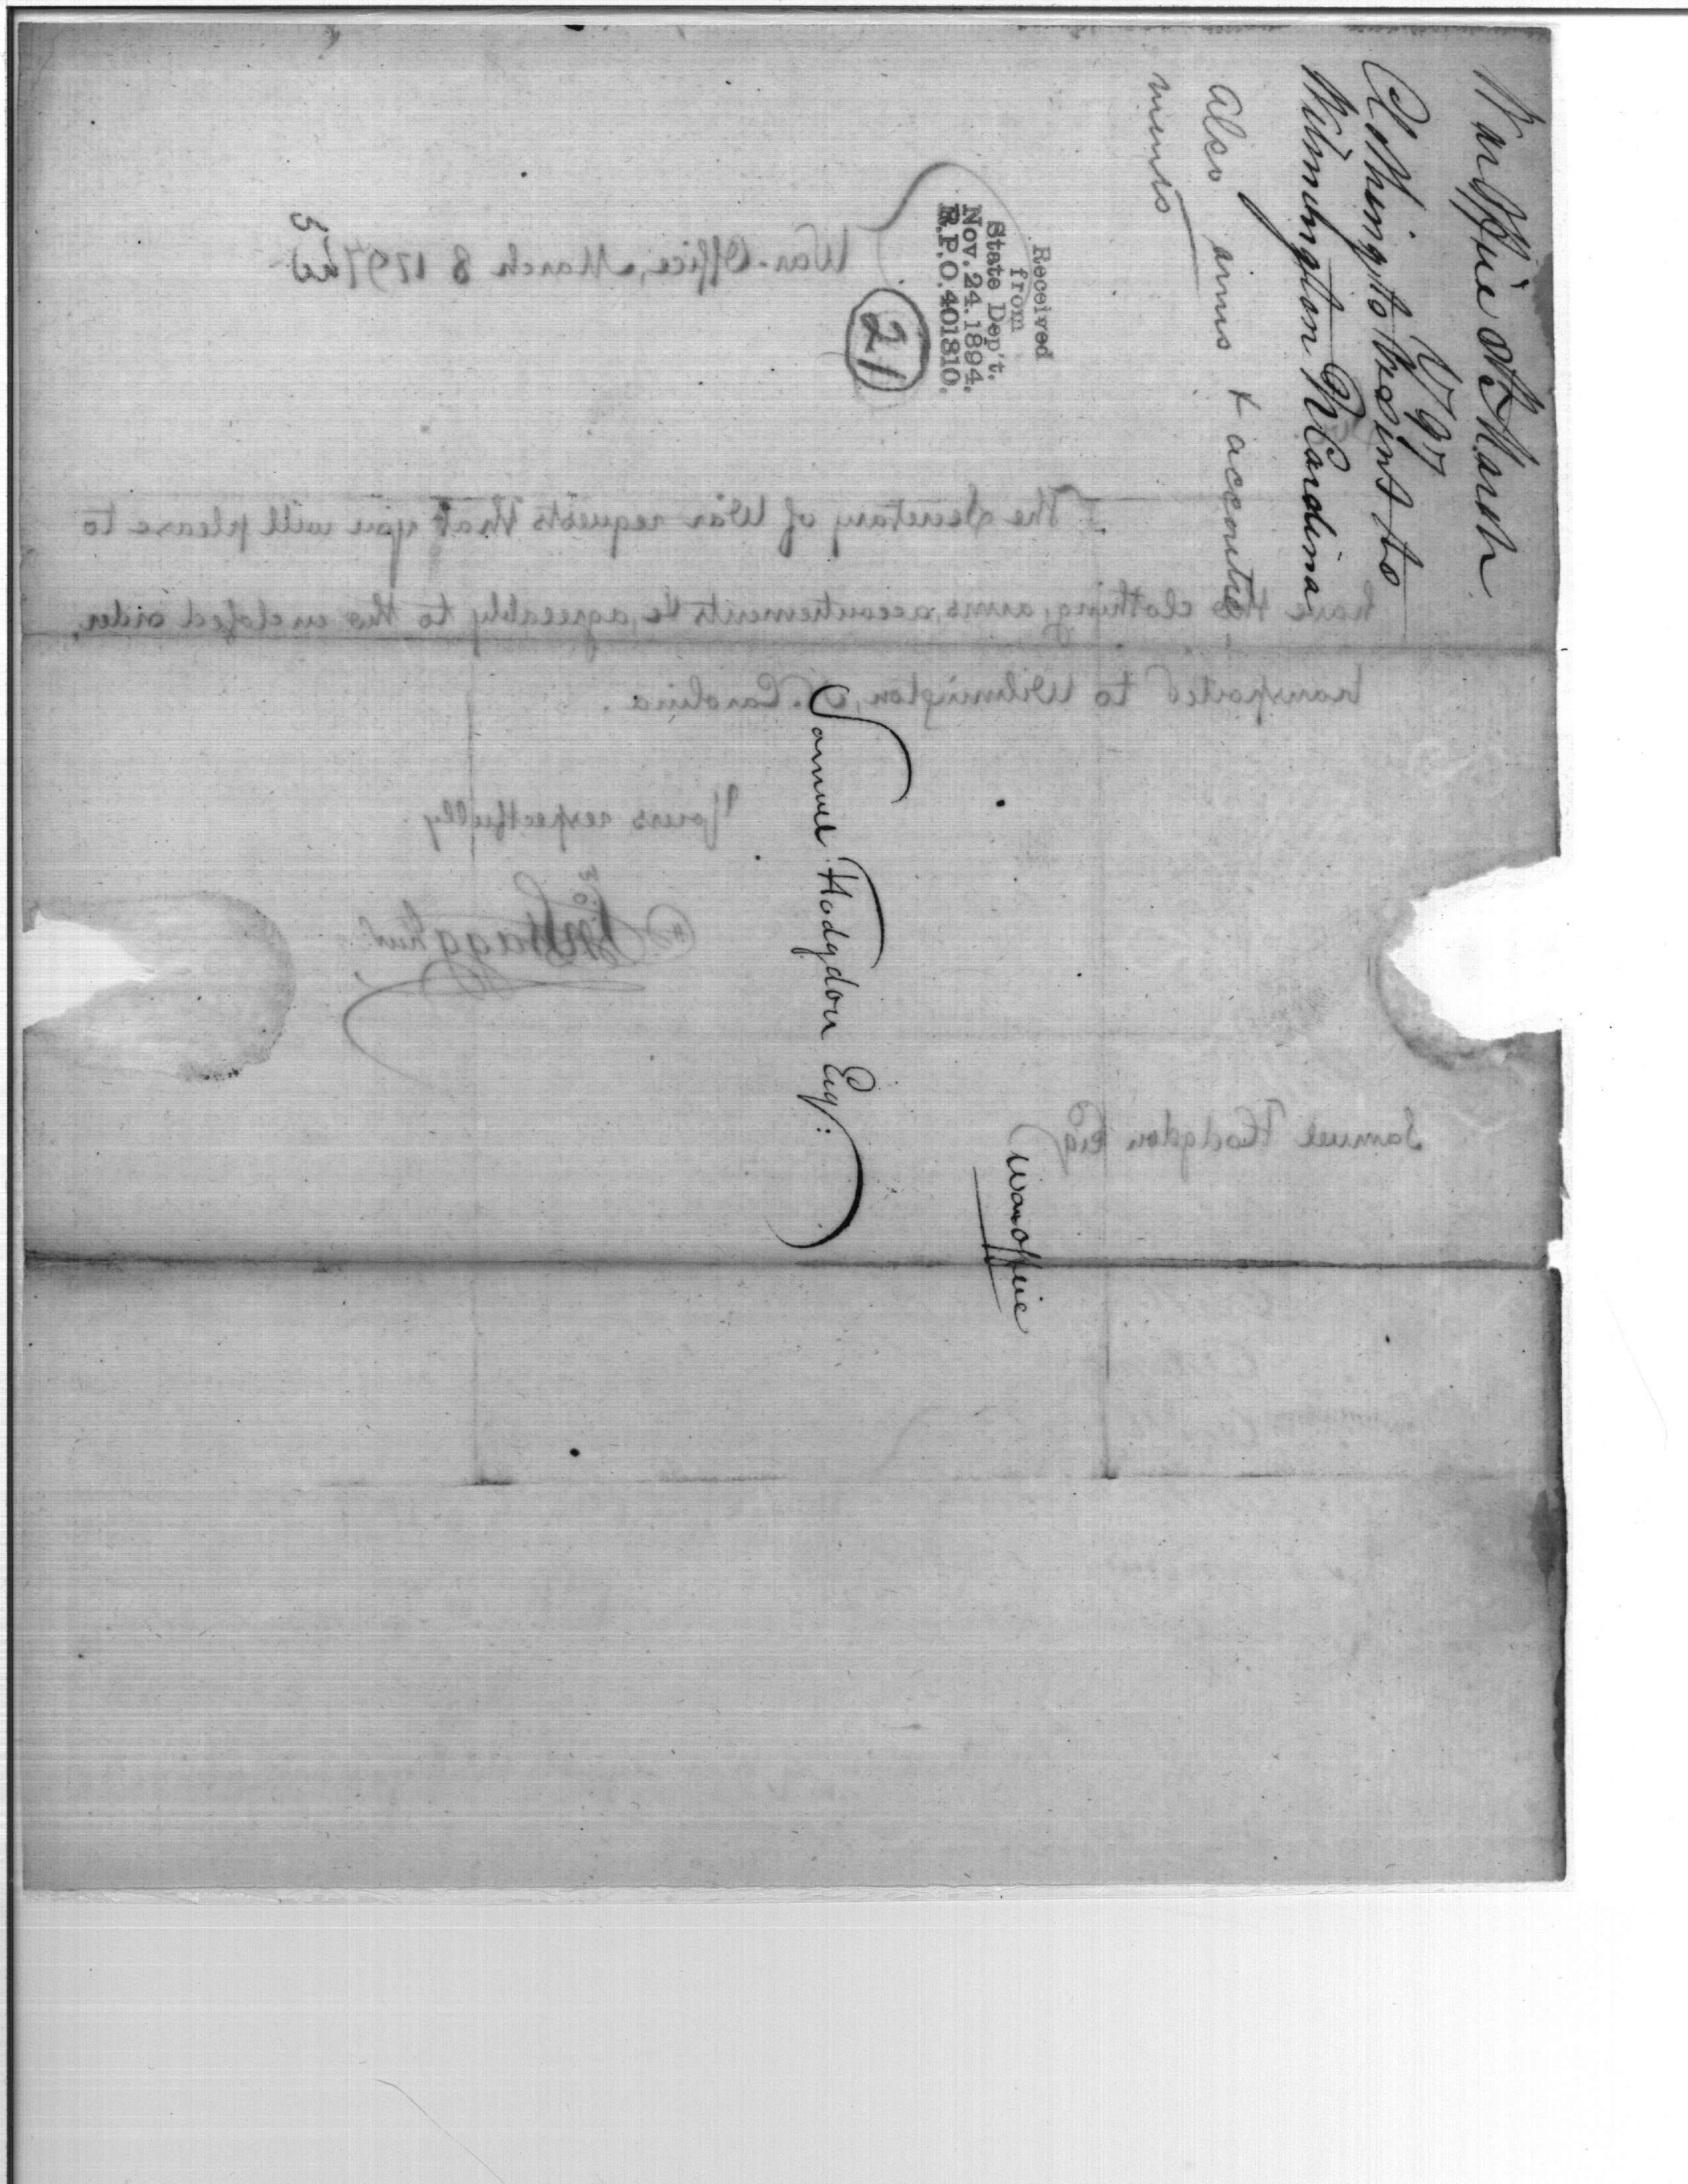 War Office 8th March
1797
Clothing to be sent to
Wilmington N Carolina
Also arms & accoutre-
ments
Received
from
State Dep't.
Nov. 24. 1894.
R.P.O. 401810.
21
War Office
Samuel Hodgdon Esq:
War-Office, March 8 1797
The Secretary of War requests that you will please to
have the clothing, arms, accoutrements &c, agreeably to the enclosed order,
transported to Wilmington, N. Carolina.
Yours respectfully
Samuel Hodgdon Esq